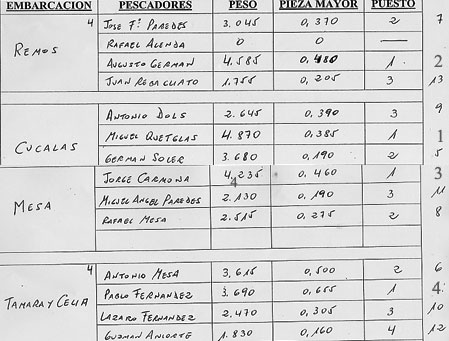 EMBARCACION PESCADORES PESO PIEZA MAYOR PUESTO
REMOS 4 JOSE Fº PAREDES 3.045 0,370 2 7
RAFAEL ALENDA 0 0 —
AUGUSTO GERMAN 4.585 0,480 1 2
JUAN 1.755 0,205 3 13
CUCALAS ANTONIO DOLS 2.645 0,390 3 9
MIGUEL QUETGLAS 4.870 0,385 1 1
GERMAN SOLER 3.680 0,190 2 5
MESA JORGE CARMONA 4,235 0,460 1 3
4
MIGUEL ANGEL PAREDES 2.130 0,190 3 11
RAFAEL MESA 2.515 0,275 2 8
TAMARA Y CELIA 4 ANTONIO MESA 3,615 0,500 2 6
PABLO FERNANDEZ 3.690 0,655 1 4
LAZARO FERNANDEZ 2.470 0,305 3 10
GUZMAN ANIORTE 1.830 0,160 4 12